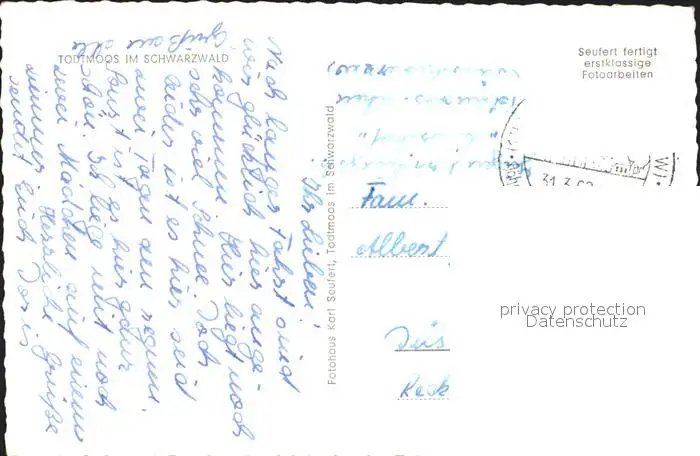 TODTMOOS IM SCHWARZWALD
Seufert fertigt
erstklassige
Fotoarbeiten
Fotohaus Karl Seufert, Todtmoos Im Schwarzwald
Ihr Lieben!
Nach langer Fahrt sind
wir glücklich hier ange-
kommen. Hier liegt noch
sehr viel Schnee. Doch
leider ist es hier seid
zwei Tagen am regnen.
Sonst ist es hier ganz
schön. Ich liege mit noch
zwei Mädchen auf einem
Zimmer. Herzliche Grüße
sendet Euch Doris
Grüß an alle
Fam.
Albert
31.3.
privacy protection
Datenschutz